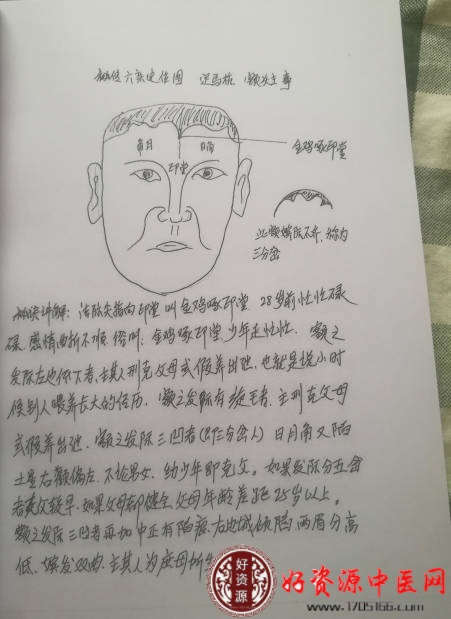 六亲定位图 额头主事
金鸡啄印堂
印堂
此额发际不齐,称为
三分岔
诀讲解:法际尖指向印堂叫金鸡啄印堂 28岁前忙忙碌
碌.感情曲折不顺 俗叫:金鸡啄印堂少年走忙忙. 额之
发际左边低下者,主其人刑克父母或假养出继,也就是说小时
候别人喂养长大的经历.额之发际有旋毛者.主刑克父母
或假养出继.额之发际三凹者(即三分岔人)日月角又陷
土星右颧偏左.不论男女.幼少年即克父.如果发际分五岔
者克父较早.如果父母都健全.父母年龄差距25岁以上.
额之发际三凹者再加中正有陷痕.右边城倾陷.两眉分高
低.主其人为庶母所
好资源
好资源中医网
www.1705166.com